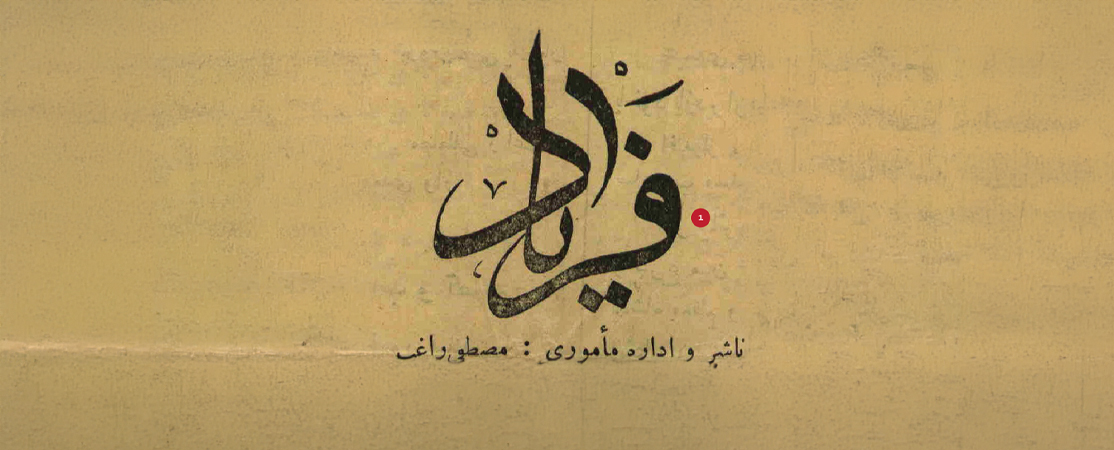 فریاد
1
ناشر و اداره مأموری : مصطفی راغب